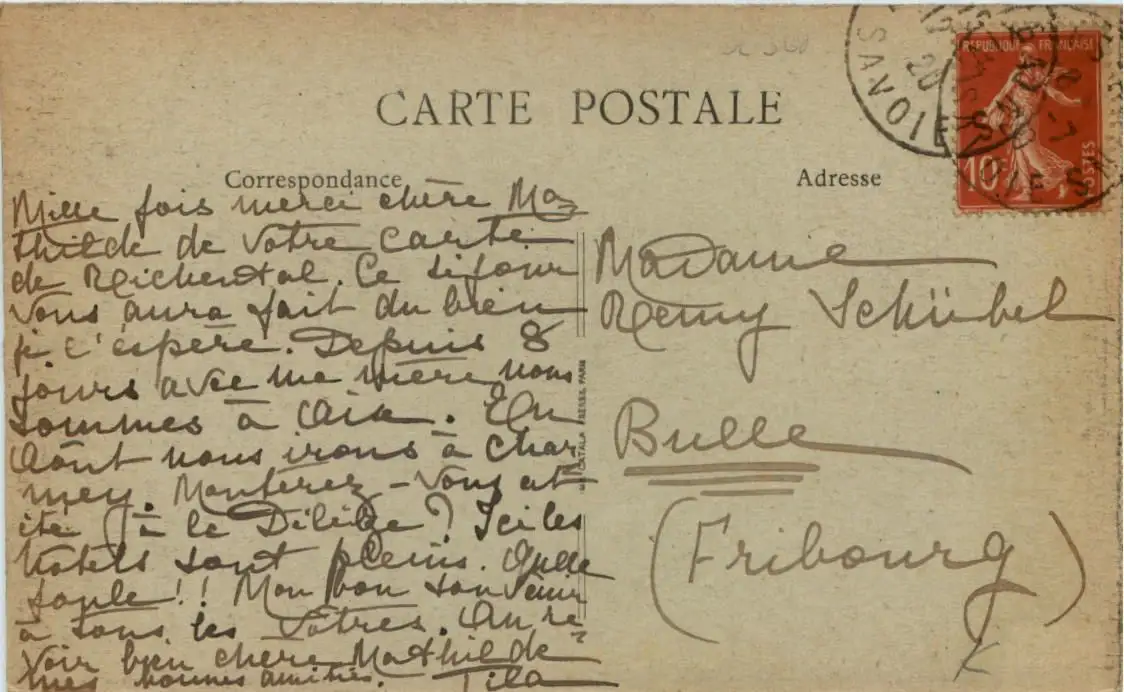 CARTE POSTALE
Correspondance
Adresse
Mille fois merci chère Ma-
thilde de votre carte
de Reichental. Ce séjour
vous aura fait du bien
je l'espère. Depuis 8
jours avec ma mère nous
sommes à Aix. En
Août nous irons à Char-
mey. Monterez-vous cet
été à le ? Ici les
hotels sont pleins. Quelle
foule!! Mon bon souvenir
à tous les Vôtres. Au re-
voir bien chère Mathilde
mes bonnes amitiés.
Madame
Remy Schübel
Bulle
(Fribourg)
REPUBLIQUE FRANÇAISE
10
POSTES
SAVOIE
CATALA FRERES, PARIS